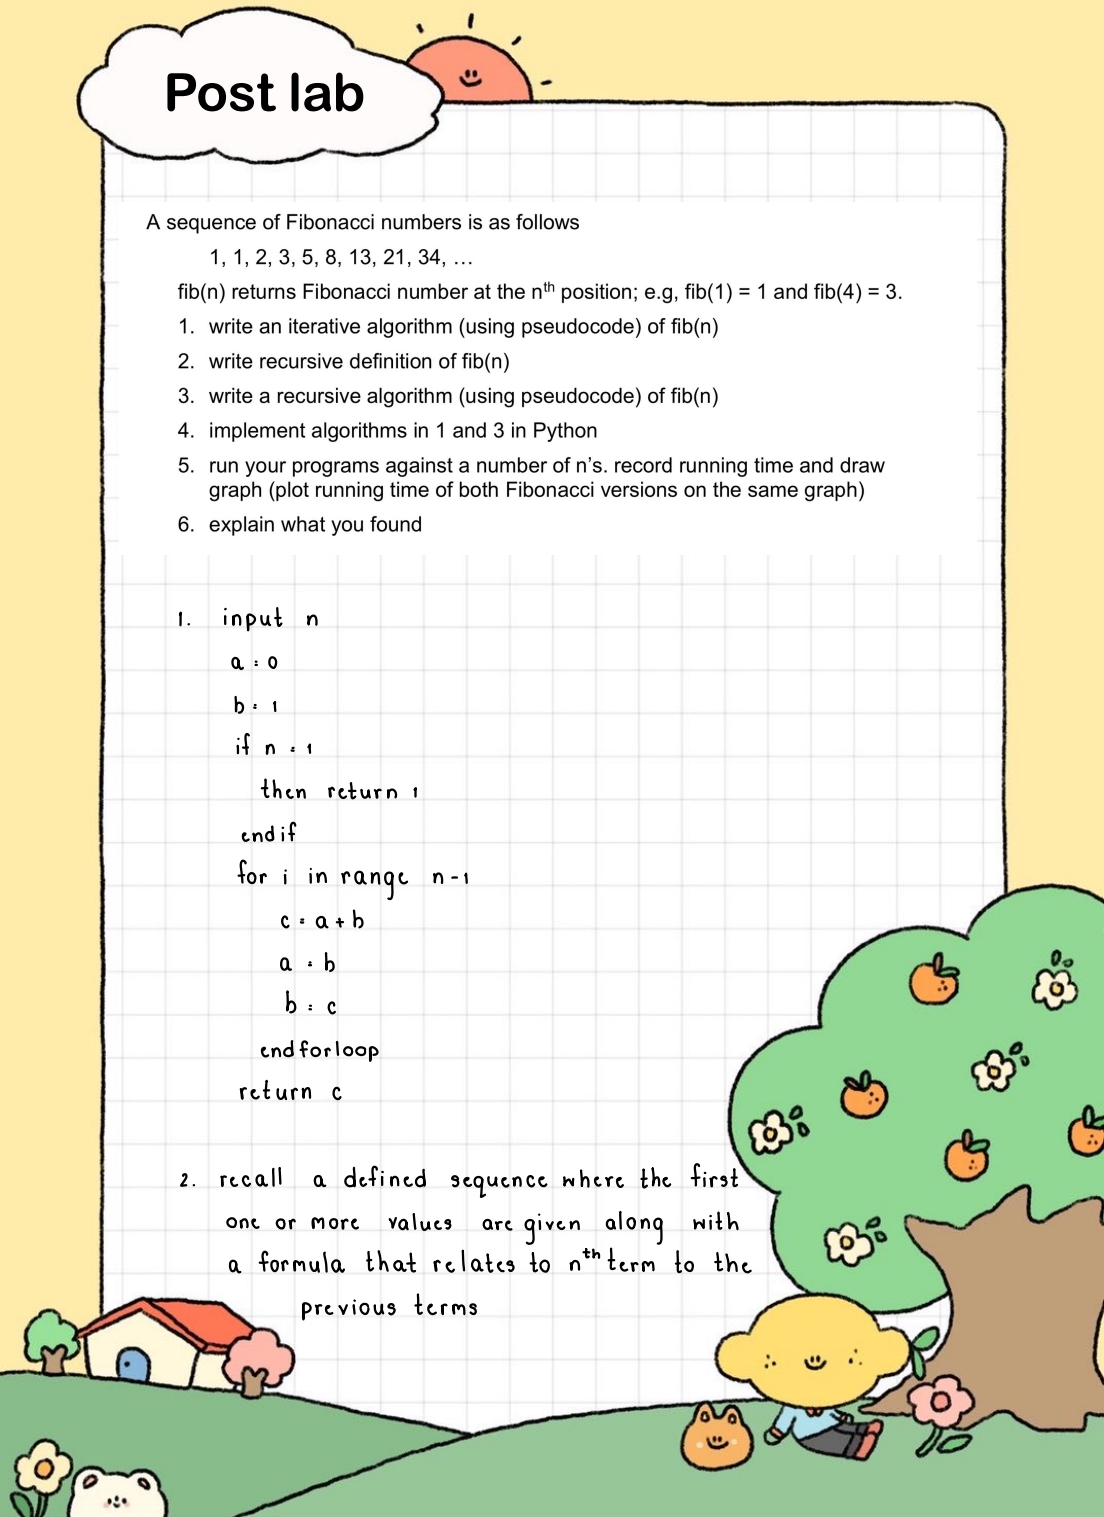 Post lab
A sequence of Fibonacci numbers is as follows
1, 1, 2, 3, 5, 8, 13, 21, 34, …
fib(n) returns Fibonacci number at the nth position; e.g, fib(1) = 1 and fib(4) = 3.
1. write an iterative algorithm (using pseudocode) of fib(n)
2. write recursive definition of fib(n)
3. write a recursive algorithm (using pseudocode) of fib(n)
4. implement algorithms in 1 and 3 in Python
5. run your programs against a number of n's. record running time and draw
graph (plot running time of both Fibonacci versions on the same graph)
6. explain what you found
1. input n
a = 0
b = 1
if n = 1
then return 1
endif
for i in range n-1
c = a + b
a = b
b = c
endforloop
return c
2. recall a defined sequence where the first
one or more values are given along with
a formula that relates to nth term to the
previous terms